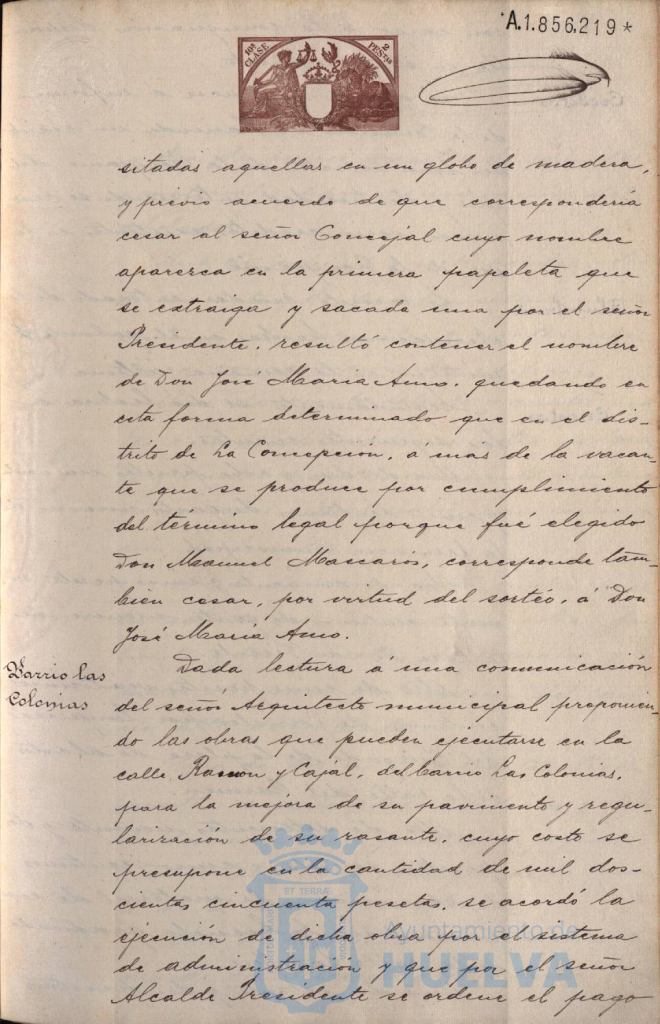 A.1.856.219*
10ª CLASE
2 PESTAS
sitadas aquellas en un globo de madera,
y previo acuerdo de que correspondería
cesar al señor Concejal cuyo nombre
aparezca en la primera papeleta que
se extraiga y sacada una por el señor
Presidente, resultó contener el nombre
de Don José Maria Amo, quedando en
esta forma determinado que en el dis-
trito de La Concepción, á más de la vacan-
te que se produce por cumplimiento
del término legal porque fué elegido
Don Manuel Mascarós, corresponde tam-
bien cesar, por virtud del sorteo, á Don
José Maria Amo.
Barrio las
Colonias
Dada lectura á una comunicación
del señor Arquitecto municipal proponien-
do las obras que pueden ejecutarse en la
calle Ramon y Cajal, del barrio Las Colonias,
para la mejora de su pavimento y regu-
larización de su rasante, cuyo costo se
presupone en la cantidad de mil dos-
cientas cincuenta pesetas, se acordó la
ejecución de dicha obra por el sistema
de administración y que por el señor
Alcalde Presidente se ordene el pago
Ayuntamiento de
HUELVA